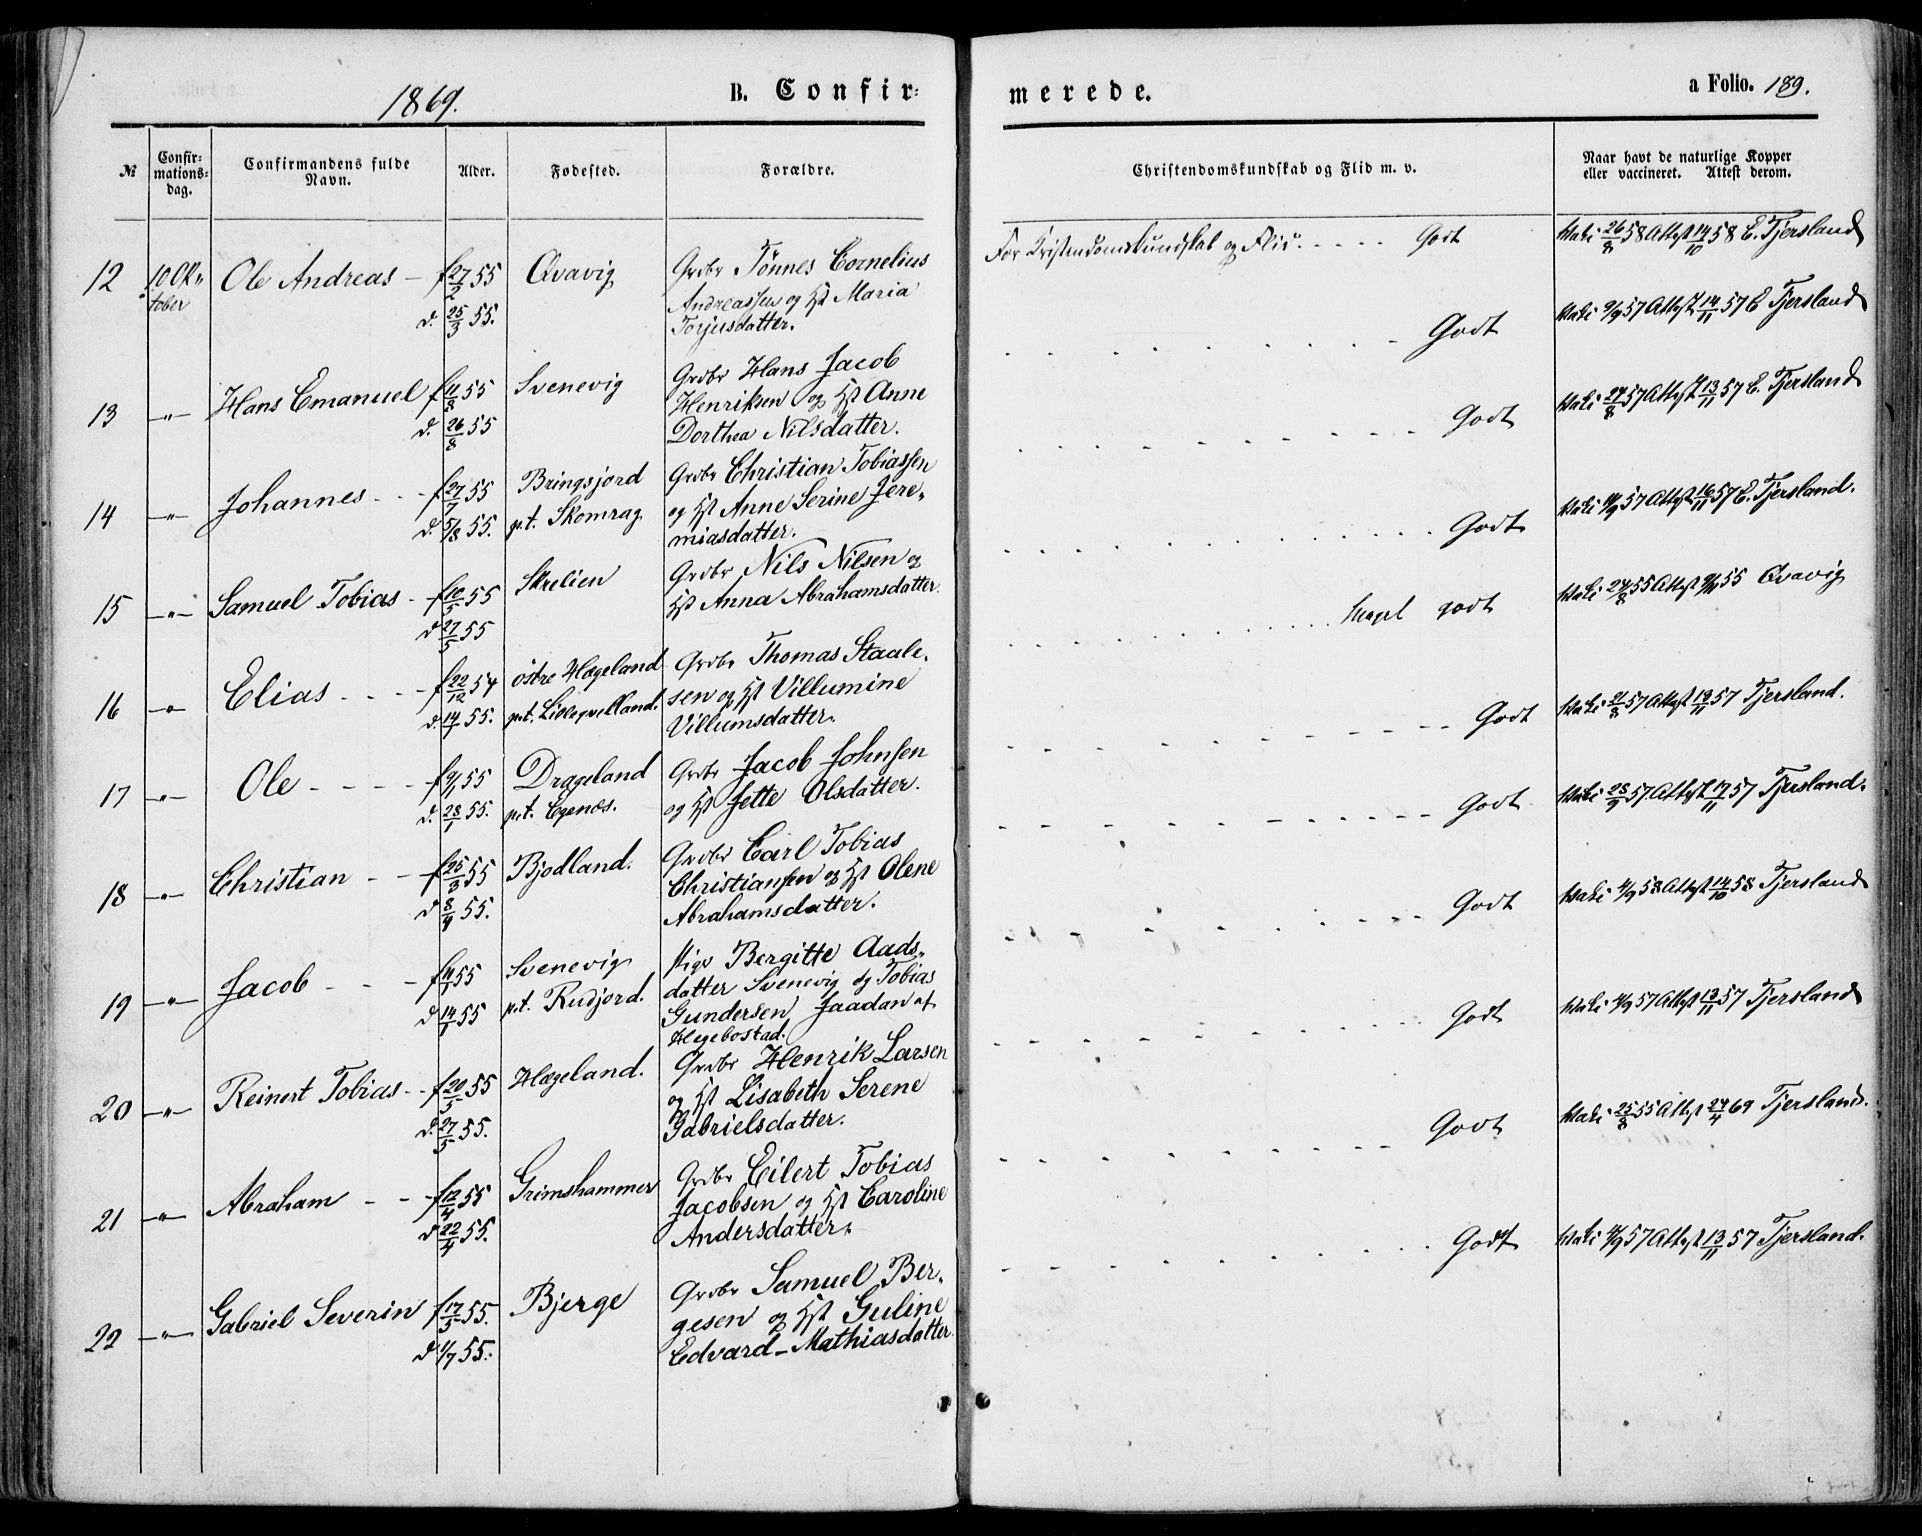 1869.
B. Confir-
merede.
a Folio. 189.
№
Confir-
mations-
dag.
Confirmandens fulde
Navn.
Alder.
Fødested.
Forældre.
Christendomskundskab og Flid m. v.
Naar havt de naturlige Kopper
eller vaccineret. Attest derom.
12 10 Ok- Ole Andreas - f 27/2 55 Qvavig Grdbr Tønnes Cornelius
tober d. 25/3 55. Andreassen og Hst Maria
Torjusdatter.
For Kristendomskundskab og Flid. - - - - - Godt
Vaki 26/8 58 Attest 14/10 58 E. Tjersland
13 -"- Hans Emanuel f 11/8 55 Svenevig Grdbr Hans Jacob
d. 26/8 55 Henriksen og Hst Anne
Dorthea Nilsdatter.
Godt
Vaki 9/9 57 Attest 14/11 57 E Tjersland
14 -"- Johannes - - - f 27/7 55 Bringsjord Grdbr Christian Tobiassen
d. 5/8 55. p.t. Skomrag og Hst Anne Serine Jere-
miasdatter.
Godt
Vaki 27/8 57 Attest 13/11 57 E. Tjersland
15 -"- Samuel Tobias - f 10/5 55 Skrelien Grdbr Nils Nilsen og
d 27/5 55 Hst Anna Abrahamsdatter.
Godt
Vaki 57 Attest 16/11 57 E. Tjersland.
16 -"- Elias - - - - f 22/12 54 østre Hægeland Grdbr Thomas Staale-
d. 14/1 55. p.t. sen og Hst Villumine
Villumsdatter.
Meget godt
Vaki 27/8 55 Attest 55 Qvavig
17 -"- Ole - - - - - f 9/1 55 Drageland Grdbr Jacob Johnsen
d. 28/1 55. p.t. Egenæs. og Hst Jette Olsdatter.
Godt
Vaki 21/8 57 Attest 13/11 57 Tjersland.
18 -"- Christian - - f 25/3 55 Bjodland. Grdbr Carl Tobias
d 8/4 55. Christiansen og Hst Olene
Abrahamsdatter.
Godt
Vaki 57. Attest 17/11 57 Tjersland.
19 -"- Jacob - - - f 55 Svenevig Pige Bergitte Aads-
d 14/1 55 p.t. Rudjord. datter Svenevig og Tobias
Gundersen Jaadan af
Hegebostad.
Godt
Vaki 4/9 58 Attest 14/10 58 Tjersland
20 -"- Reinert Tobias - - f 20/5 55 Hægeland. Grdbr Henrik Larsen
d. 27/5 55. og Hst Lisabeth Serene
Gabrielsdatter.
Godt
Vaki 57 Attest 13/11 57 Tjersland
21 -"- Abraham - - f 12/4 55 Grimshammer Grdbr Eilert Tobias
d 22/4 55. Jacobsen og Hst Caroline
Andersdatter.
Godt
Vaki 25/8 55 Attest 27/4 69 Tjersland.
22 -"- Gabriel Severin f 17/5 55. Bjerge Grdbr Samuel Ber-
d 1/7 55. gesen og Hst Guline
Edvard-Mathiasdatter.
Godt
Vaki 57 Attest 13/11 57 Tjersland.